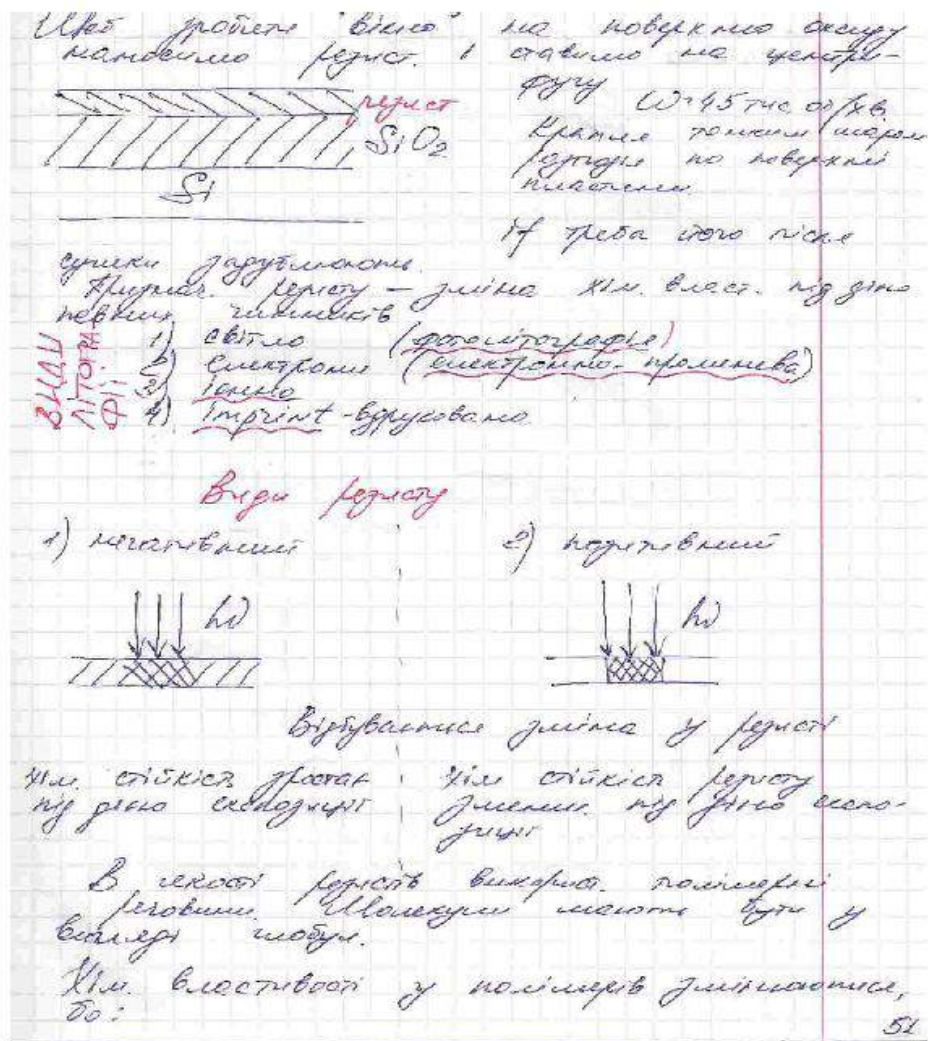 Щоб зробити "вікно" на поверхню оксиду
наносимо резист. І ставимо на центри-
фугу
ω~45 тис об/хв.
резист
SiO₂
Si
Крапля тонким шаром
по поверхні
пластини.
треба його після
сушки
резисту – зміна хім. власт. під дією
певних чинників
ВИДИ ЛІТОГРАФІЇ
1) світло (фотолітографія)
2) електрони (електронно-променева)
3) іонно
4) imprint - вдруковано
Види резисту
1) негативний
2) позитивний
hν
hν
Відбувається зміна у резисті
Хім. стійкість зростає
під дією експозиції
Хім стійкість резисту
зменш. під дією експо-
зиції
В якості резистів використ. полімерні
речовини. Молекули мають бути у
вигляді глобул.
Хім. властивості у полімерів змінюються,
бо:
51